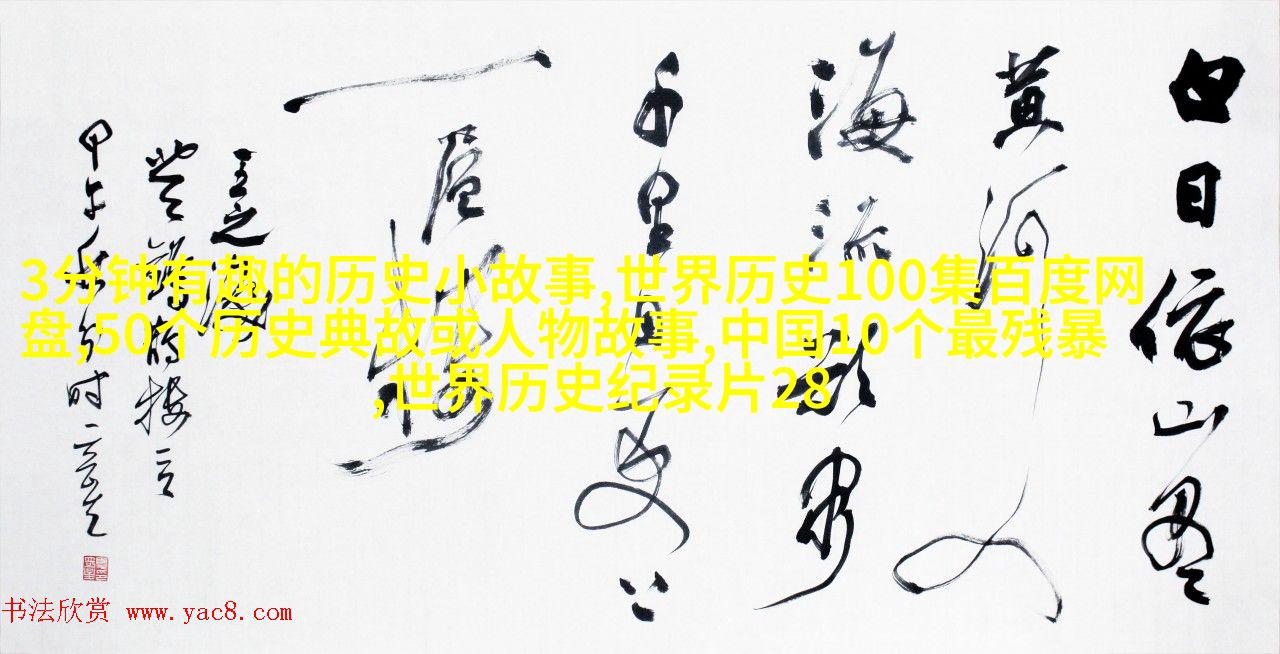 白日依山尽
黄河入
海流欲穷
千里目更上
一层楼
王之涣
甲午秋
3分钟有趣的历史小故事,世界历史100集百度网
盘,50个历史典故或人物故事,中国10个最残暴
,世界历史纪录片28
书法欣赏 www.yac8.com